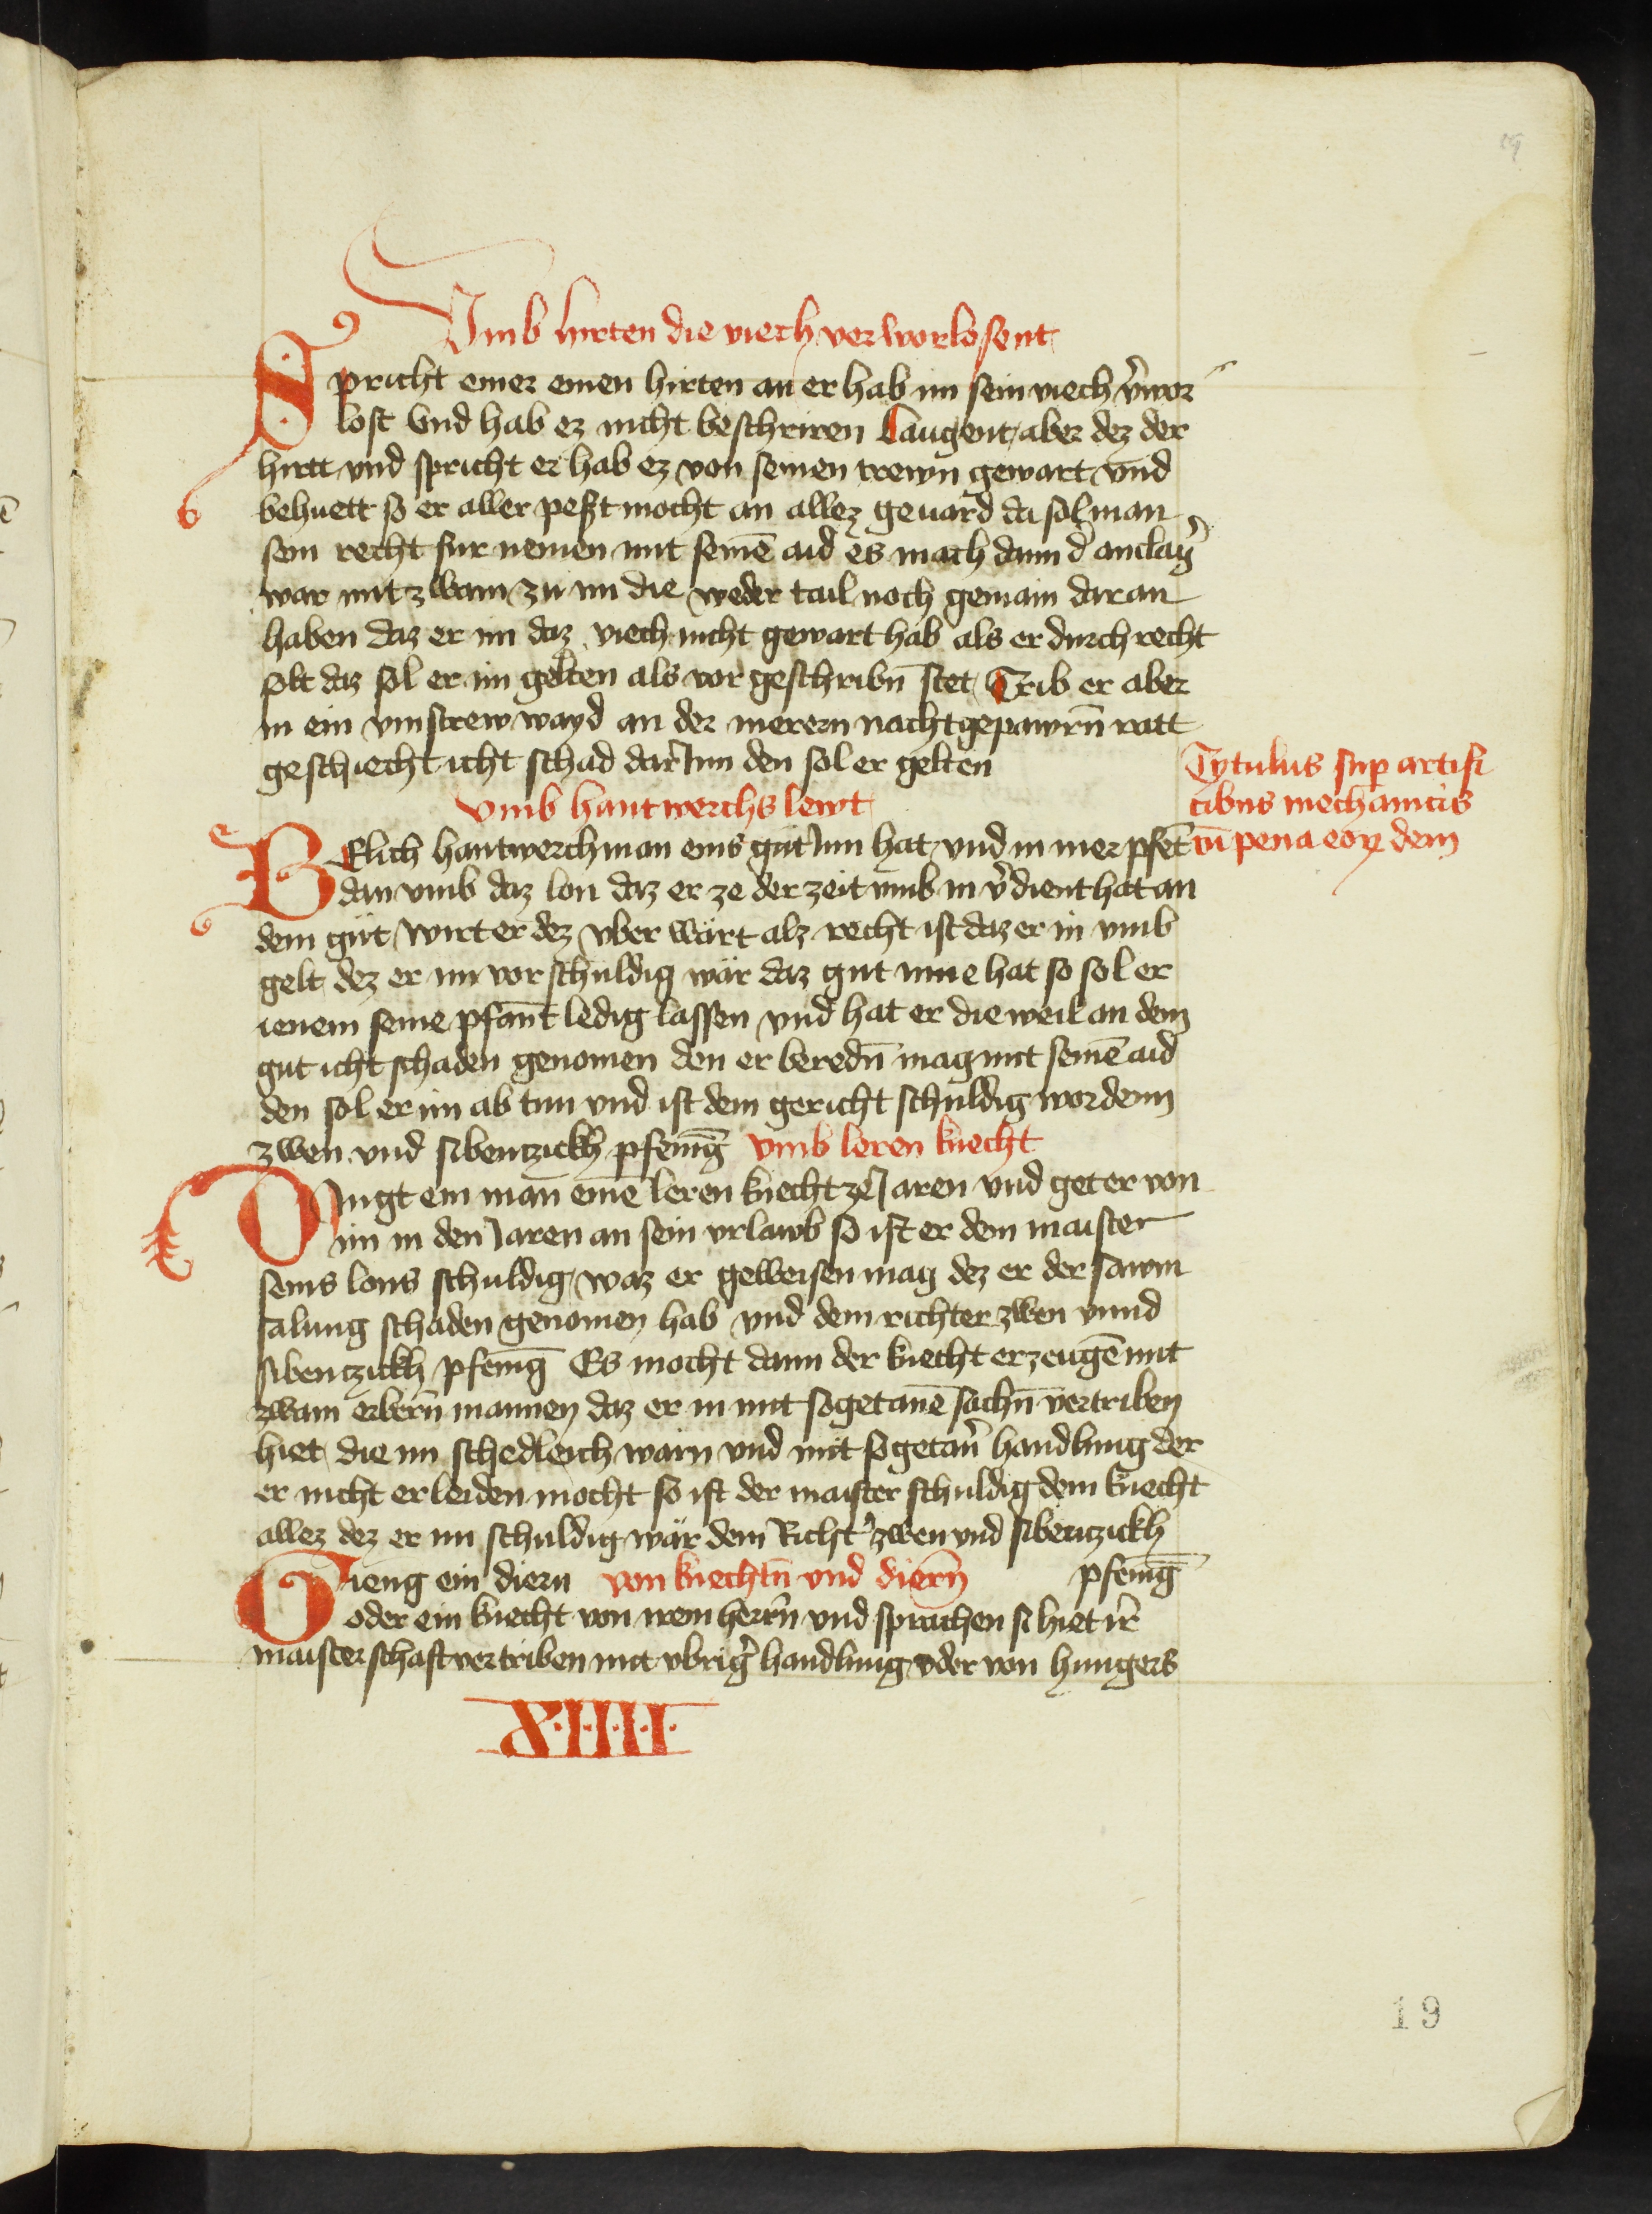 Vmb hirten die viech verworlosent
Spricht einer einen hirten an er hab im sein viech v̾wor
lost Vnd hab ez nicht beschriren Laugent aber dez der
hirtt vnd spricht er hab ez von seinen trewn gewart vnd
behuett so er aller pest mocht an allez geuard da sol man
sein recht fur nemen mit seinē aid es mach dann d̾ anclag̾
war mit zwain zu im die weder tail noch gemain daran
haben daz er im daz viech nicht gewart hab als er durch recht
solt daz sol er im gelten als vor geschribn̄ stet Trib er aber
in ein vinstrew wayd an der merern nachtgepawrn̄ ratt
geschiecht icht schad dar Inn den sol er gelten
Tytulus sup artifi
cibus mechanicis
cū pena eoꝝdem
vmb hantwerchs lewt
WElich hantwerchman eins gut Inn hat vnd in mer pfēt
dan vmb daz lon daz er ze der zeit vmb in v̾dient hat an
dem gut wirt er dez vber wart alz recht ist daz er in vmb
gelt dez er im vor schuldig wär daz gut inne hat so sol er
ienem seine pfant ledig lassen vnd hat er die weil an dem
gut icht schaden genomen den er beredn̄ mag mit seinē aid
den sol er im ab tun vnd ist dem gericht schuldig wordenn
zwen vnd sibentzickh pfenīg vmb leren knecht
DIngt ein man einē leren knecht ze Jaren vnd get er von
im in den Jaren an sein vrlawb so ist er dem maister
seins lons schuldig waz er geweisen mag dez er der sawm
salung schaden genomen hab vnd dem richter zwen vnnd
sibentzickh pfenīg Es mocht dann der knecht erzeugē mit
zwain erbern̄ mannen daz er in mit sogetanē sachn̄ vertriben
hiet die im schedleich warn vnd mit sogetan̾ handlung der
er nicht erleiden mocht so ist der maister schuldig dem knecht
allez dez er im schuldig wär dem Richt̾ zwen vnd sibentzickh
pfenīg
Gieng ein diern von knechtn̄ vnd diern̄
oder ein knecht von irem herrn̄ vnd sprachen si hiet ir̾
maisterschaft vertriben mit vbrig̾ handlung oder von hungers
X·I·I·I·I·
19